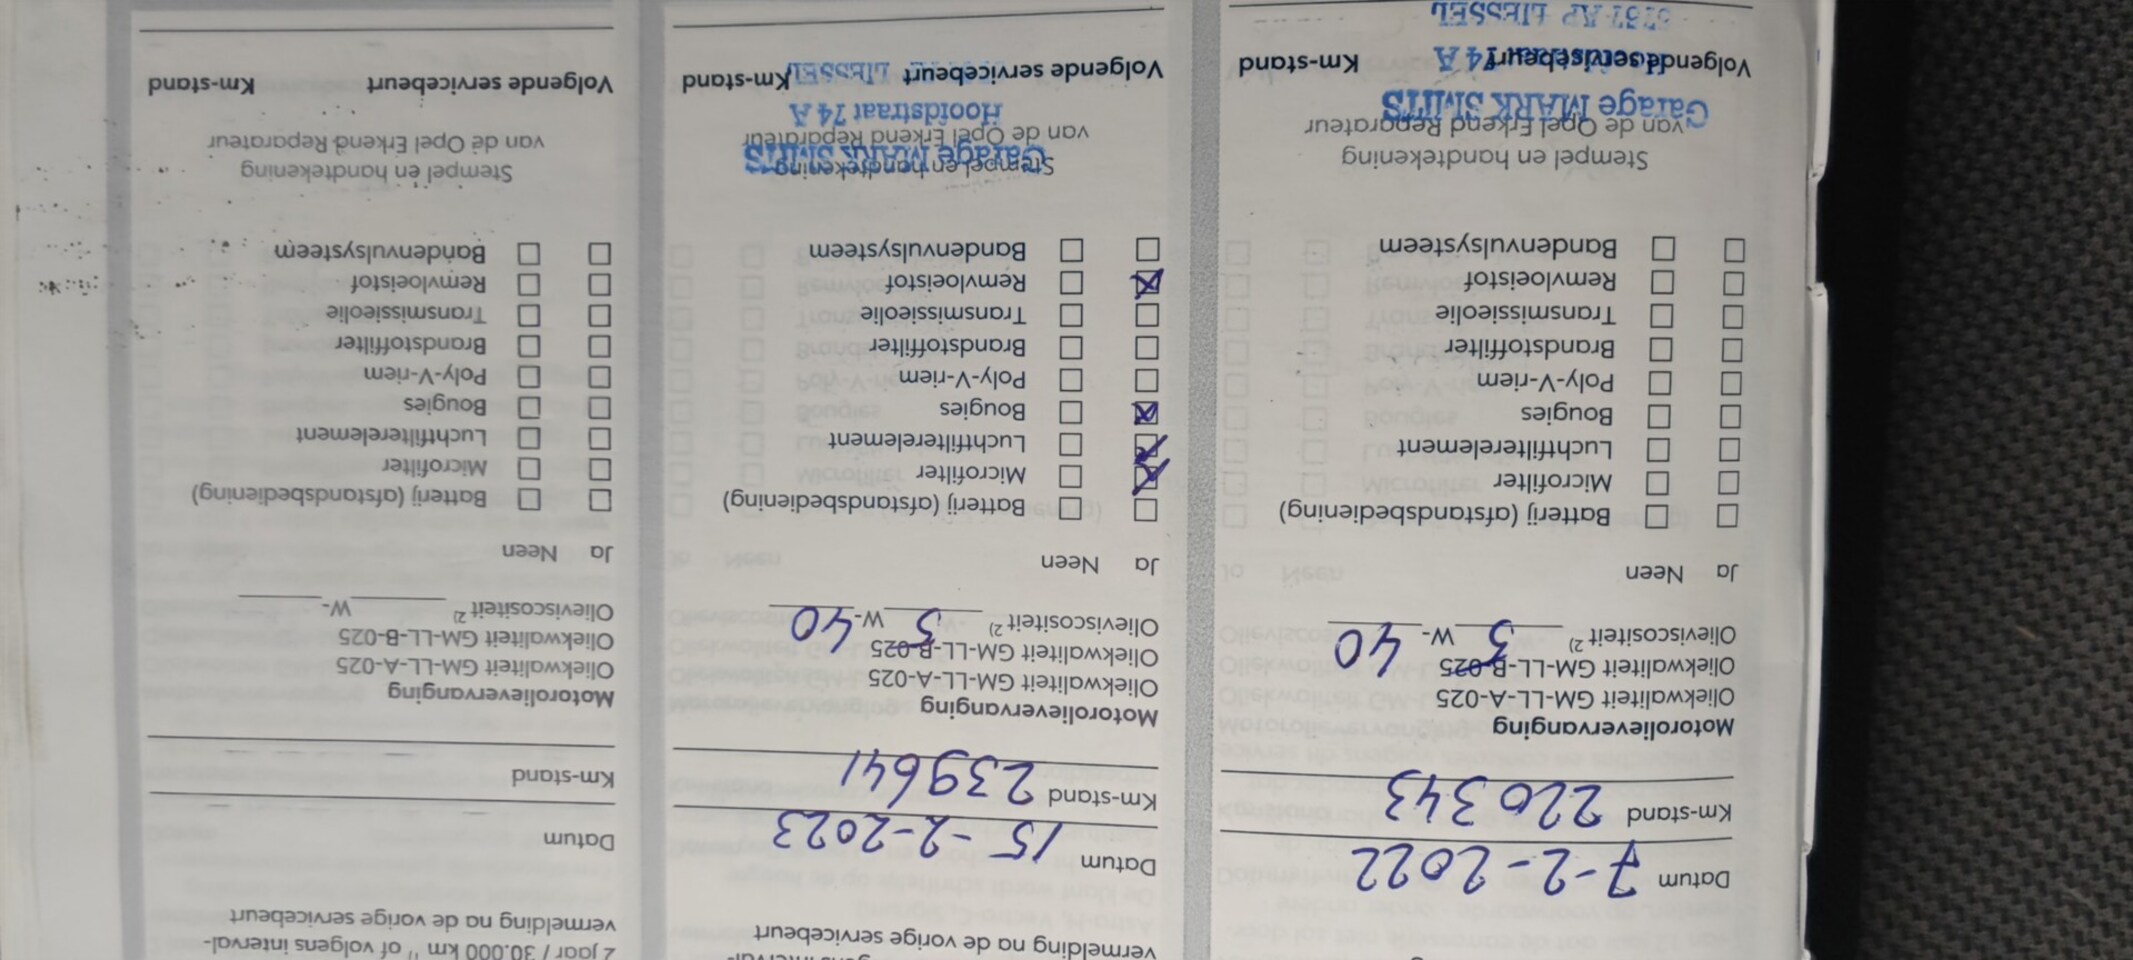 Datum 7-2-2022
Km-stand 220343
Motorolievervanging
Oliekwaliteit GM-LL-A-025
Oliekwaliteit GM-LL-B-025
Olieviscositeit 2) 5 W-40
Ja Neen
Batterij (afstandsbediening)
Microfilter
Luchtfilterelement
Bougies
Poly-V-riem
Brandstoffilter
Transmissieolie
Remvloeistof
Bandenvulsysteem
Stempel en handtekening
van de Opel Erkend Reparateur
Garage MARK SMITS
Volgende servicebeurt Km-stand
Hoofdstraat 74 A
5757 AP LIESSEL
vermelding na de vorige servicebeurt
Datum 15-2-2023
Km-stand 239641
Motorolievervanging
Oliekwaliteit GM-LL-A-025
Oliekwaliteit GM-LL-B-025
Olieviscositeit 2) 5 W-40
Ja Neen
Batterij (afstandsbediening)
Microfilter
Luchtfilterelement
Bougies
Poly-V-riem
Brandstoffilter
Transmissieolie
Remvloeistof
Bandenvulsysteem
Stempel en handtekening
Garage MARK SMITS
van de Opel Erkend Reparateur
Hoofdstraat 74 A
Volgende servicebeurt Km-stand
LIESSEL
2 jaar / 30.000 km 1) of volgens interval-
vermelding na de vorige servicebeurt
Datum
Km-stand
Motorolievervanging
Oliekwaliteit GM-LL-A-025
Oliekwaliteit GM-LL-B-025
Olieviscositeit 2) W-
Ja Neen
Batterij (afstandsbediening)
Microfilter
Luchtfilterelement
Bougies
Poly-V-riem
Brandstoffilter
Transmissieolie
Remvloeistof
Bandenvulsysteem
Stempel en handtekening
van de Opel Erkend Reparateur
Volgende servicebeurt Km-stand